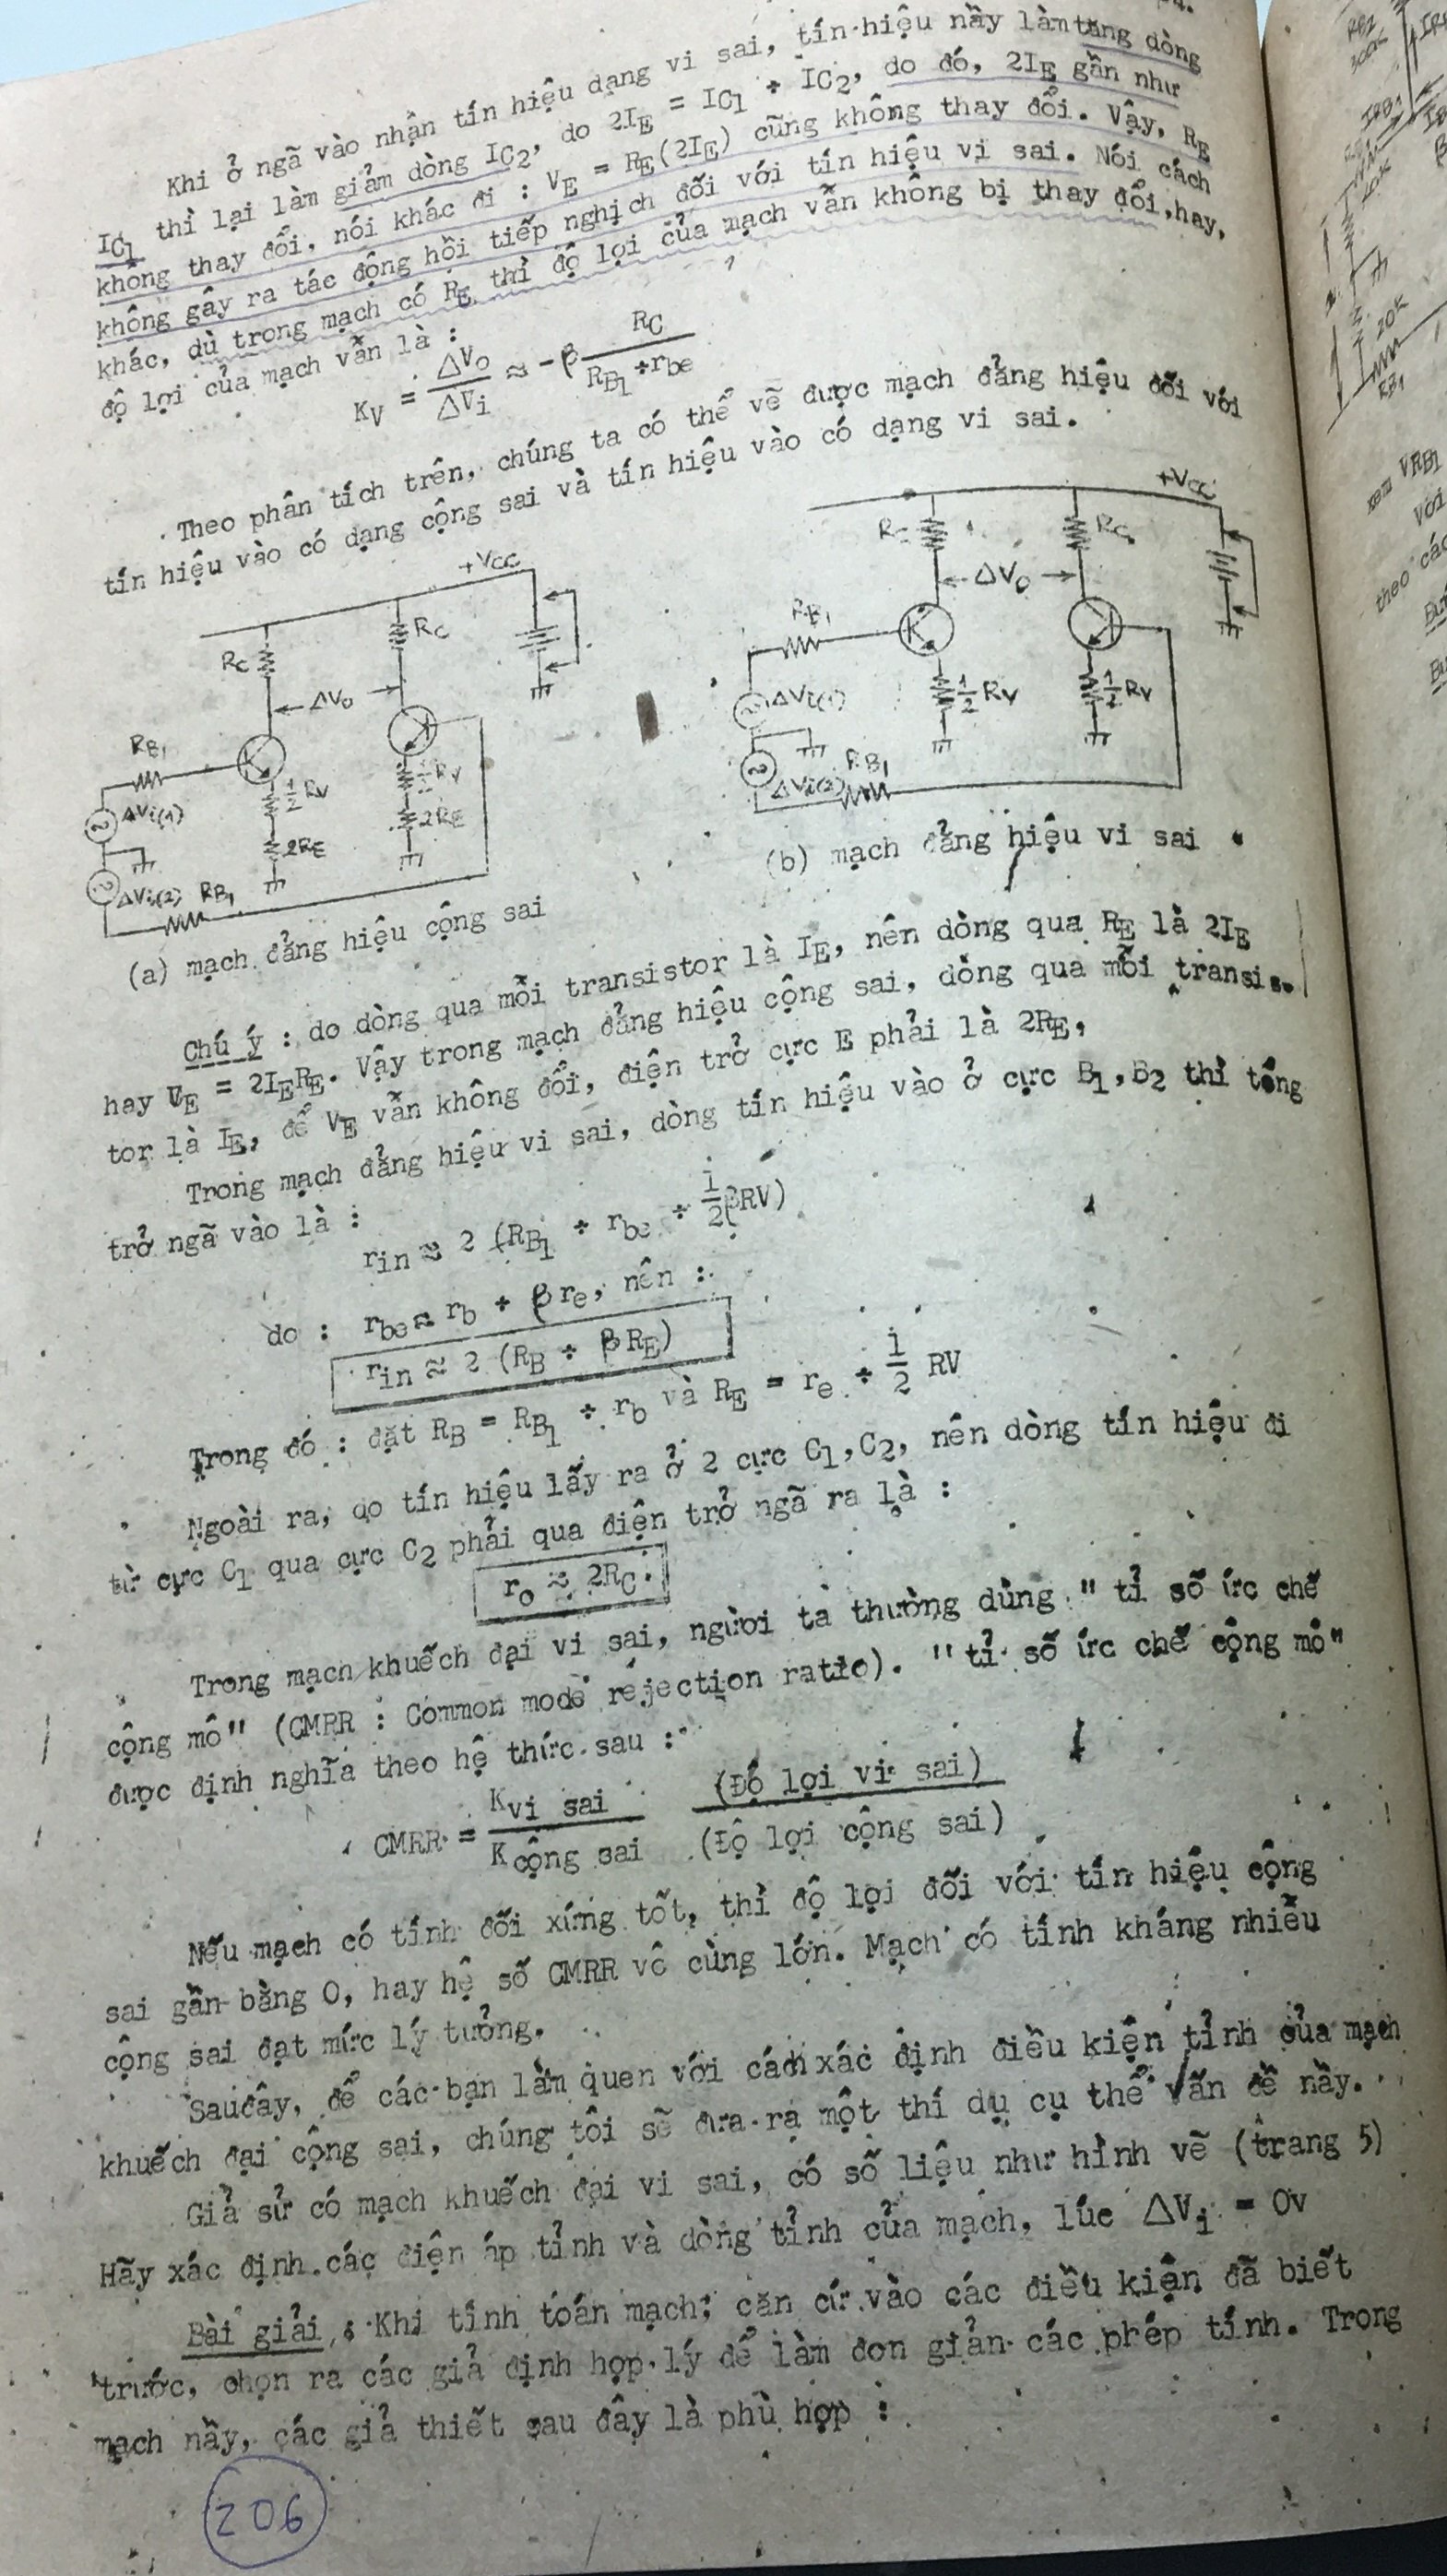 Khi ở ngã vào nhận tín hiệu dạng vi sai, tín hiệu nầy làm tăng dòng
IC1 thì lại làm giảm dòng IC2, do 2IE = IC1 + IC2, do đó, 2IE gần như
không thay đổi, nói khác đi : VE = RE(2IE) cũng không thay đổi. Vậy, RE
không gây ra tác động hồi tiếp nghịch đối với tín hiệu vi sai. Nói cách
khác, dù trong mạch có RE thì độ lợi của mạch vẫn không bị thay đổi, hay,
độ lợi của mạch vẫn là :
KV = ΔVo / ΔVi ≈ -β RC / RB1 + rbe
Theo phân tích trên, chúng ta có thể vẽ được mạch đẳng hiệu đối với
tín hiệu vào có dạng cộng sai và tín hiệu vào có dạng vi sai.
+VCC
RC
RC
ΔVo
RB1
ΔVi(1)
1/2 RV
1/2 RV
2RE
2RE
ΔVi(2)
RB1
(a) mạch đẳng hiệu cộng sai
+VCC
RC
RC
ΔVo
RB1
ΔVi(1)
1/2 RV
1/2 RV
ΔVi(2)
RB1
(b) mạch đẳng hiệu vi sai
Chú ý : do dòng qua mỗi transistor là IE, nên dòng qua RE là 2IE
hay VE = 2IERE. Vậy trong mạch đẳng hiệu cộng sai, dòng qua mỗi transis-
tor là IE, để VE vẫn không đổi, điện trở cực E phải là 2RE,
Trong mạch đẳng hiệu vi sai, dòng tín hiệu vào ở cực B1,B2 thì tổng
trở ngã vào là :
rin ≈ 2 (RB1 + rbe + 1/2 βRV)
do : rbe ≈ rb + β re, nên :
rin ≈ 2 (RB + β RE)
Trong đó : đặt RB = RB1 + rb và RE = re + 1/2 RV
Ngoài ra, do tín hiệu lấy ra ở 2 cực C1,C2, nên dòng tín hiệu đi
từ cực C1 qua cực C2 phải qua điện trở ngã ra là :
ro ≈ 2RC.
Trong mạch khuếch đại vi sai, người ta thường dùng " tỉ số ức chế
cộng mô" (CMRR : Common mode rejection ratio). "tỉ số ức chế cộng mô"
được định nghĩa theo hệ thức sau :
CMRR = Kvi sai / Kcộng sai (Độ lợi vi sai) / (Độ lợi cộng sai)
Nếu mạch có tính đối xứng tốt, thì độ lợi đối với tín hiệu cộng
sai gần bằng 0, hay hệ số CMRR vô cùng lớn. Mạch có tính kháng nhiễu
cộng sai đạt mức lý tưởng.
Sau đây, để các bạn làm quen với cách xác định điều kiện tỉnh của mạch
khuếch đại cộng sai, chúng tôi sẽ đưa ra một thí dụ cụ thể vấn đề nầy.
Giả sử có mạch khuếch đại vi sai, có số liệu như hình vẽ (trang 5)
Hãy xác định các điện áp tỉnh và dòng tỉnh của mạch, lúc ΔVi = 0v
Bài giải : Khi tính toán mạch; căn cứ vào các điều kiện đã biết
trước, chọn ra các giả định hợp lý để làm đơn giản các phép tính. Trong
mạch nầy, các giả thiết sau đây là phù hợp :
206
RB2
300K
IRB1
20K
RB1
xem VRB1
Với
theo các